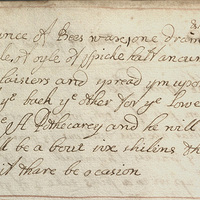 unce of Bees wax one dram
le of oyle of spicke half an oun
laisters and spread ym upo
ye back ye other for ye Lowe
e A Pothecarey and he will
ll be a bout six shilins th
it thare be ocasion